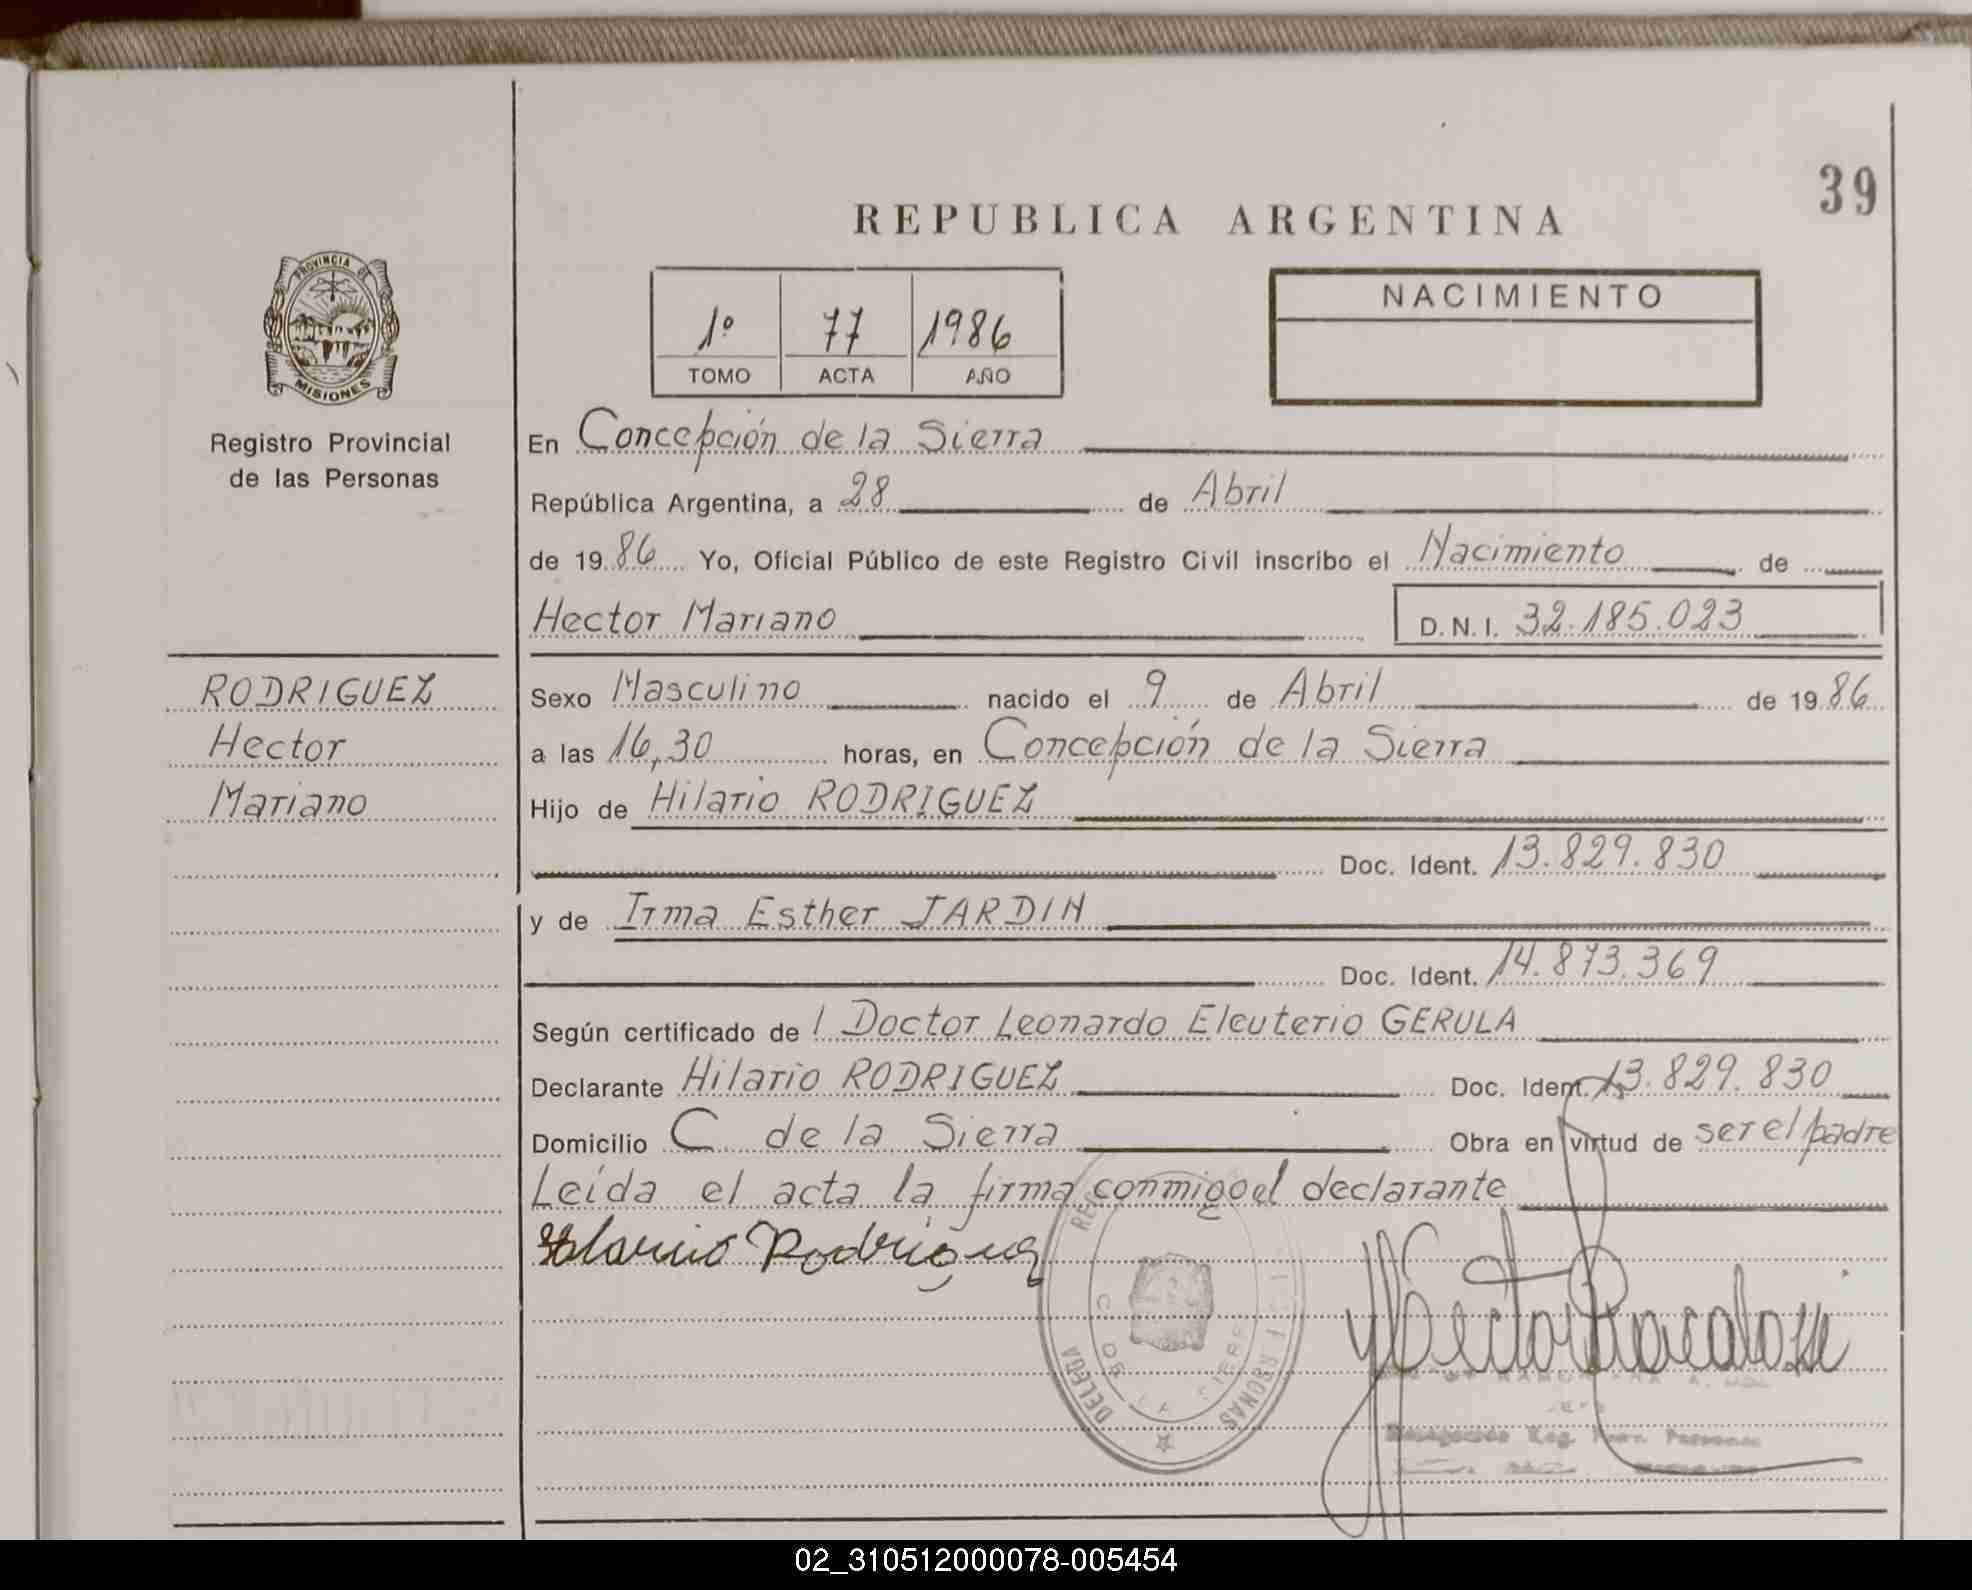 39
REPUBLICA ARGENTINA
PROVINCIA DE
MISIONES
Registro Provincial
de las Personas
1º 77 1986
TOMO ACTA AÑO
NACIMIENTO
En Concepción de la Sierra
República Argentina, a 28 de Abril
de 1986 Yo, Oficial Público de este Registro Civil inscribo el Nacimiento de
Hector Mariano D.N.I. 32.185.023
RODRIGUEZ
Hector
Mariano
Sexo Masculino nacido el 9 de Abril de 1986
a las 16,30 horas, en Concepción de la Sierra
Hijo de Hilario RODRIGUEZ
Doc. Ident. 13.829.830
y de Irma Esther JARDIN
Doc. Ident. 14.873.369
Según certificado de l Doctor Leonardo Eleuterio GERULA
Declarante Hilario RODRIGUEZ Doc. Ident. 13.829.830
Domicilio C. de la Sierra Obra en virtud de ser el padre
Leída el acta la firma conmigo el declarante
Hilario Rodriguez
DELEGA
C DE LA SIERR
02_310512000078-005454